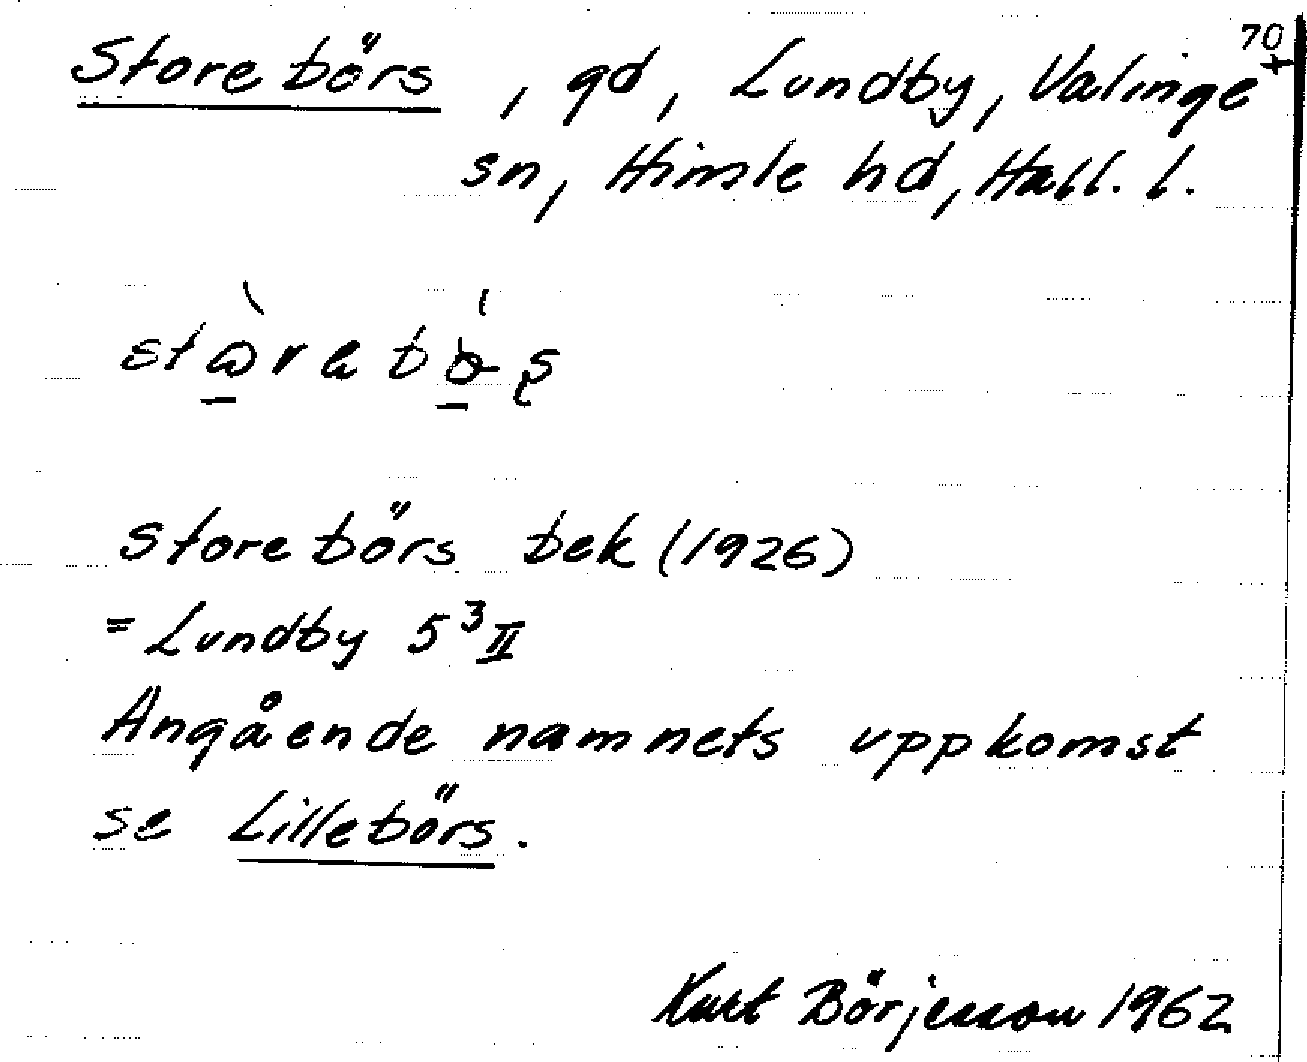 70
Storebörs, gd, Lundby, Valinge +
sn, Himle hd, Hall. l.
Storebörs bek (1926)
= Lundby 5³ II
Angående namnets uppkomst
se Lillebörs.
Kurt Börjesson 1962